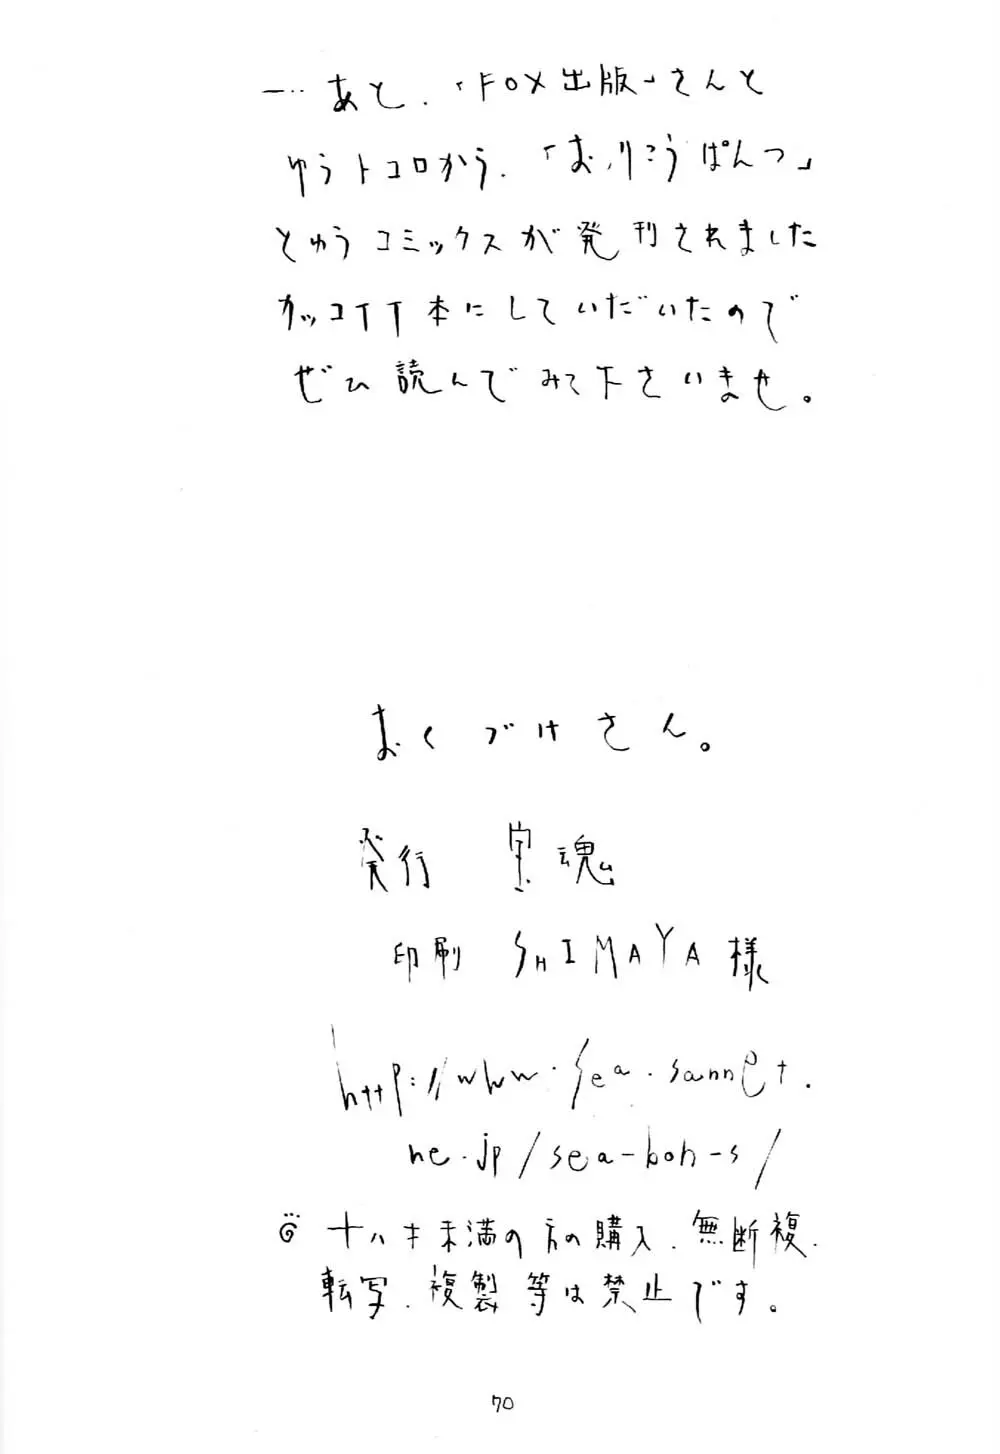 ―…あと、「FOX出版」さんと
ゆうトコロから、「おりこうぱんつ」
とゆうコミックスが発刊されました
カッコイイ本にしていただいたので
ぜひ読んでみて下さいませ。
おくづけさん。
発行 宝魂
印刷 SHIMAYA様
http://www.sea.sannet.
ne.jp/sea-bon-s/
十八才未満の方の購入、無断複、
転写、複製等は禁止です。
70